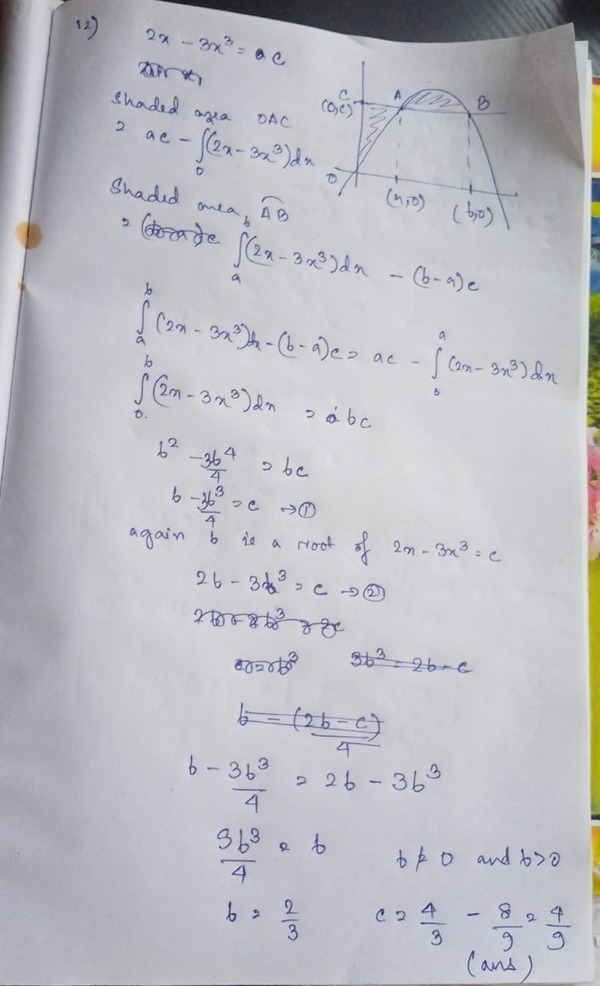 12)
2x - 3x³ = c
C
(0,c)
A
B
O
(a,0)
(b,0)
Shaded area OAC
= ac - ∫₀ (2x - 3x³)dx
Shaded area, AB
= ∫ₐᵇ (2x - 3x³)dx - (b-a)c
∫ₐᵇ (2x - 3x³)dx - (b-a)c = ac - ∫₀ᵃ (2x - 3x³)dx
∫₀ᵇ (2x - 3x³)dx = bc
b² - 3b⁴/4 = bc
b - 3b³/4 = c → ①
again b is a root of 2x - 3x³ = c
2b - 3b³ = c → ②
3b³ = 2b - c
b - (2b-c)/4
b - 3b³/4 = 2b - 3b³
9b³/4 = b b ≠ 0 and b>0
b = 2/3 c = 4/3 - 8/9 = 4/9
(ans)